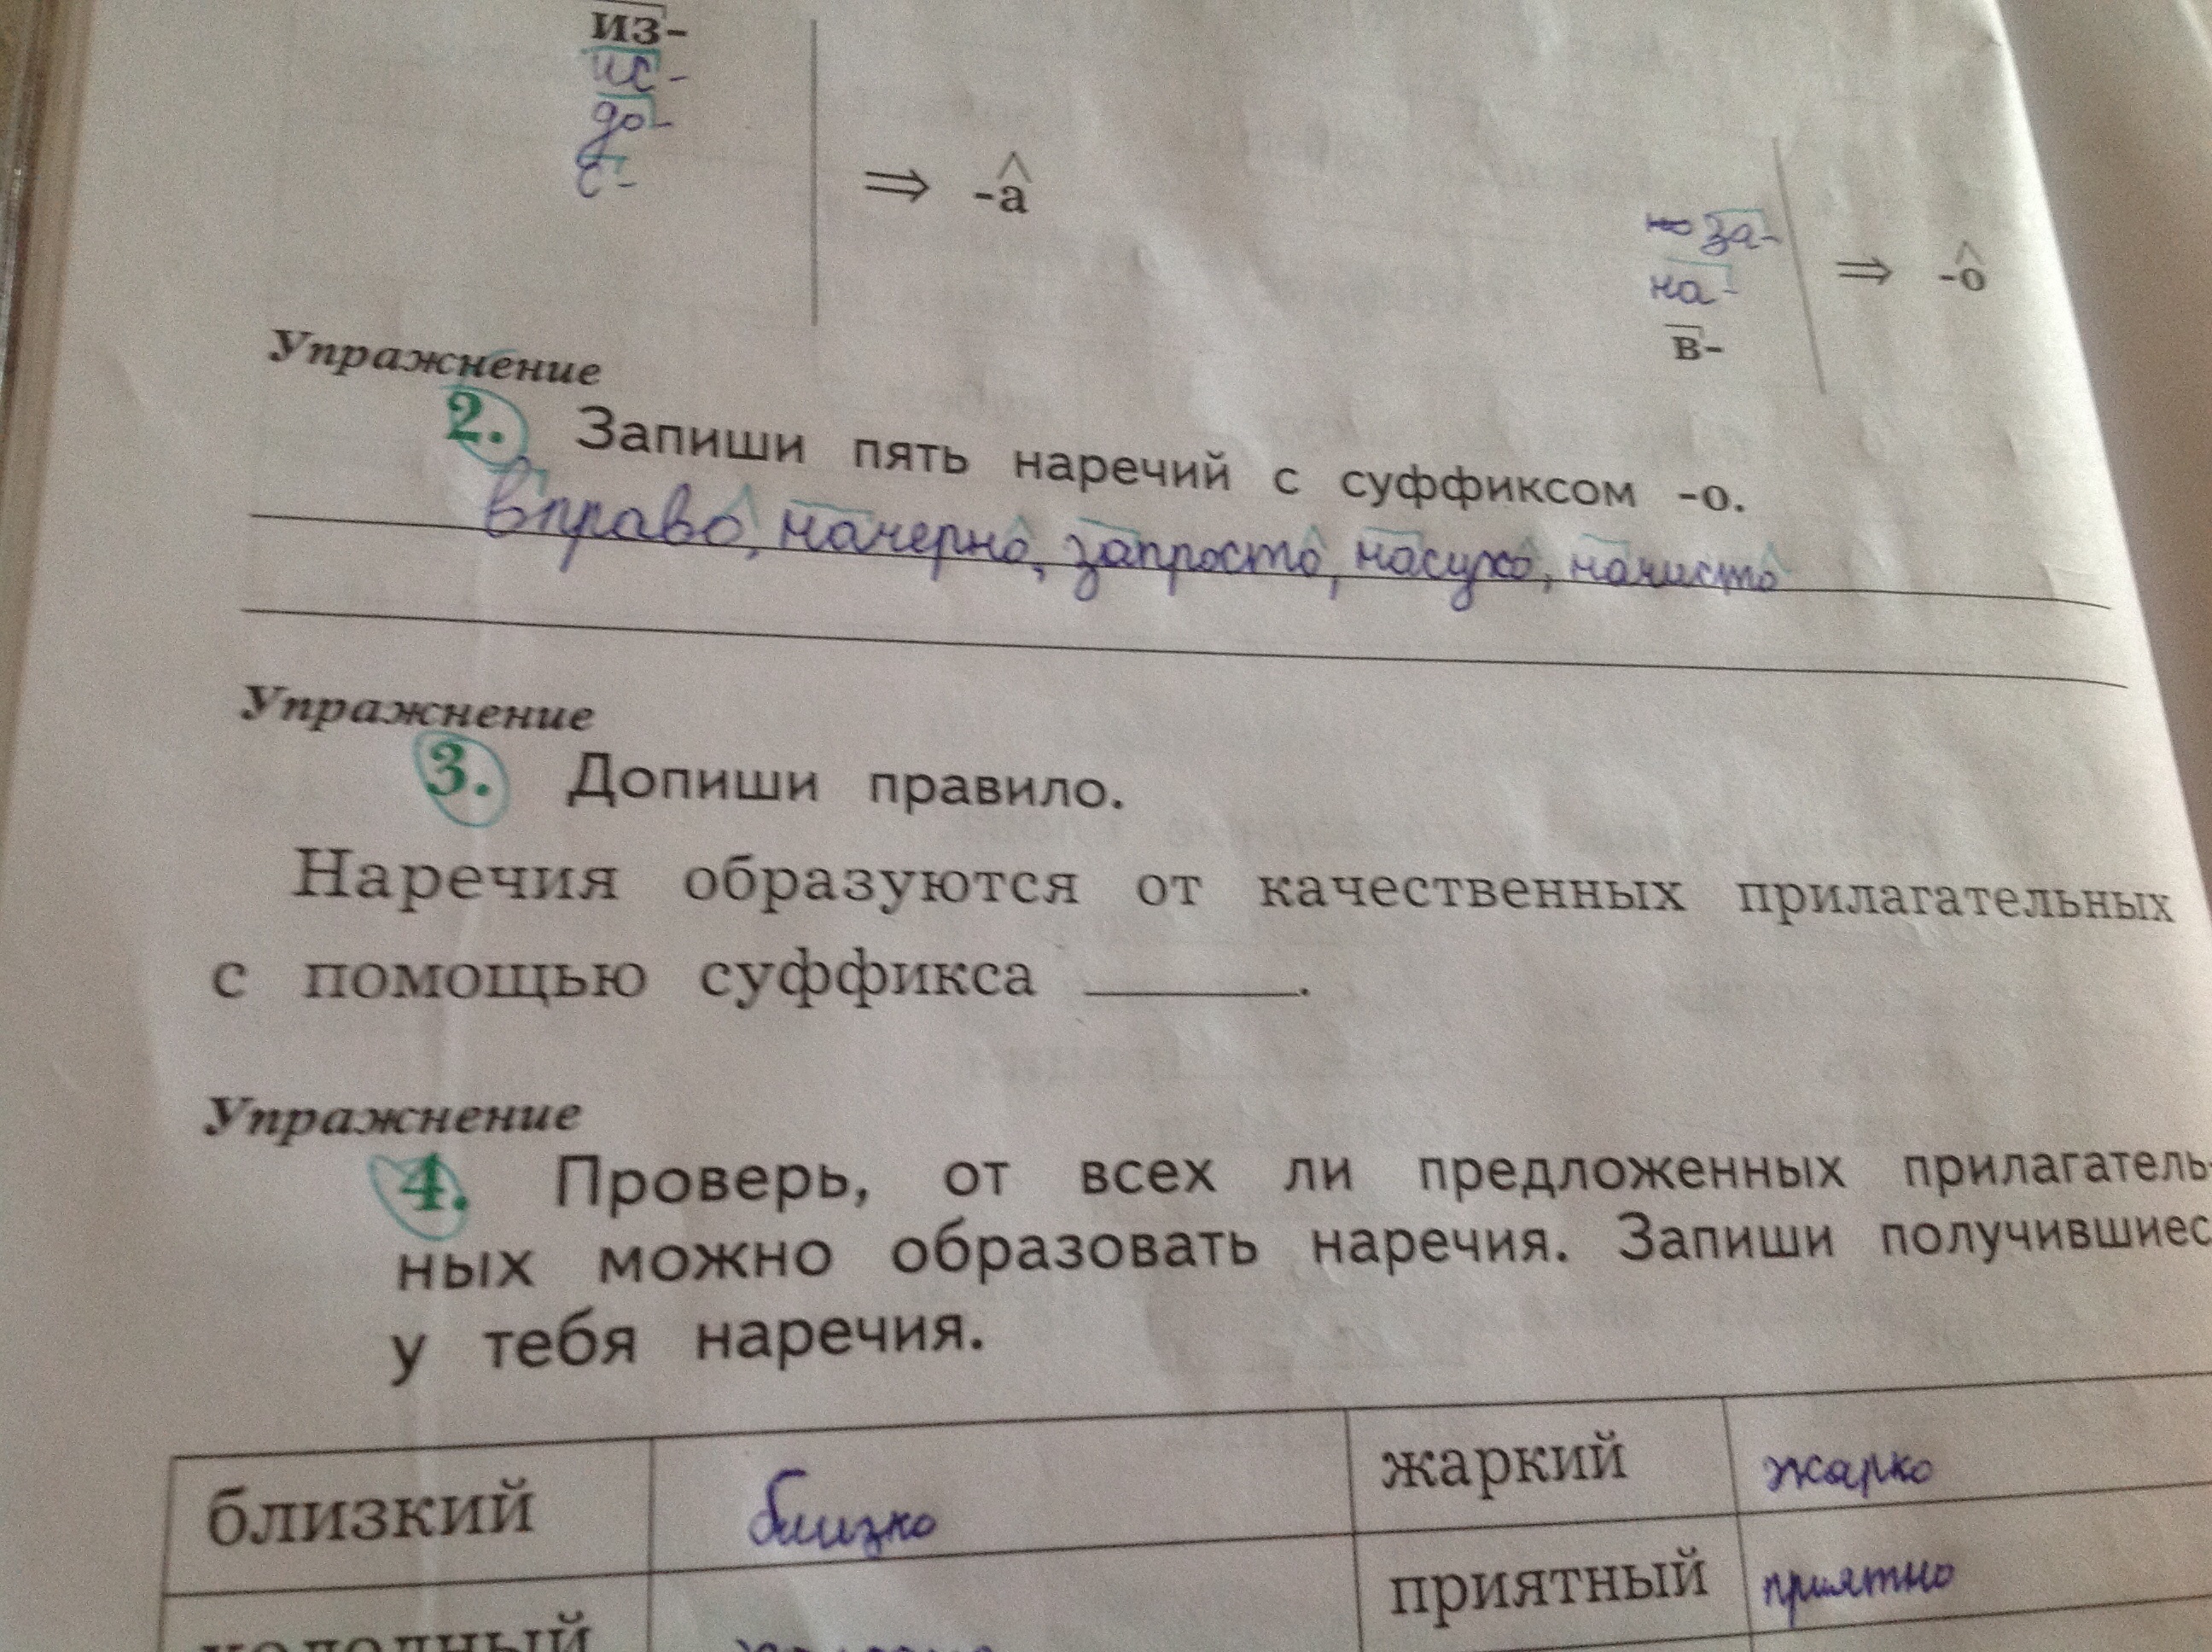 из-
ис-
до-
с-
⇒ -а
за-
на-
в-
⇒ -о
Упражнение
2. Запиши пять наречий с суффиксом -о.
вправо, начерно, запросто, насухо, начисто
Упражнение
3. Допиши правило.
Наречия образуются от качественных прилагательных
с помощью суффикса ______.
Упражнение
4. Проверь, от всех ли предложенных прилагатель-
ных можно образовать наречия. Запиши получившиес
у тебя наречия.
близкий близко жаркий жарко
приятный приятно
холодный